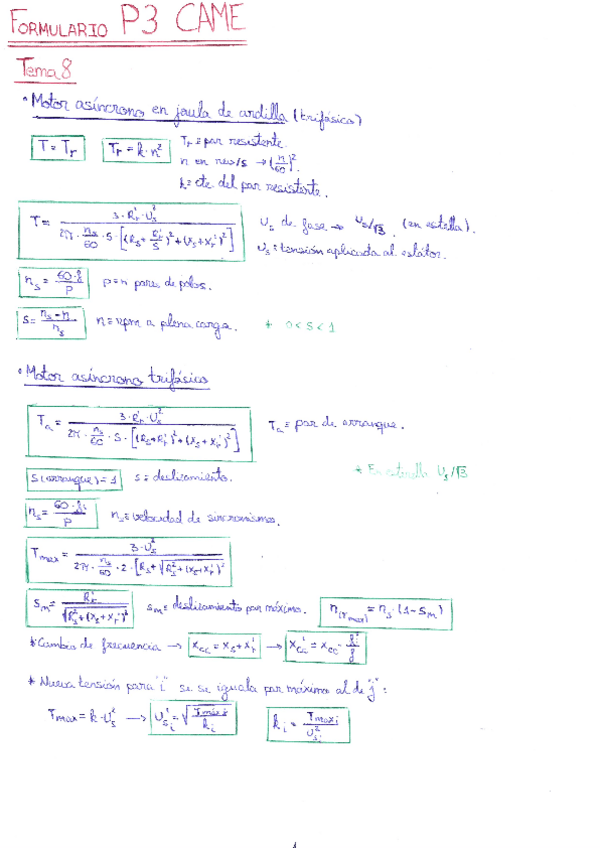 FORMULARIO P3 CAME
Tema 8
• Motor asíncrono en jaula de ardilla (trifásico)
T = Tr
Tr = k·n²
Tr = par resistente.
n en rev/s → (n/60)².
k = cte del par resistente.
T = 3·Rr'·Us² / 2π·ns/60·S·[(Rs+Rr'/S)²+(Xs+Xr')²]
Us de fase → Us/√3. (en estrella).
Us = tensión aplicada al estátor.
ns = 60·f/P
p = nº pares de polos.
S = ns-n/ns
n = rpm a plena carga.
* 0<S<1
• Motor asíncrono trifásico
Ta = 3·Rr'·Us² / 2π·ns/60·S·[(Rs+Rr')²+(Xs+Xr')²]
Ta = par de arranque.
S(arranque) = 1
s = deslizamiento.
* En estrella Us/√3
ns = 60·fi/P
ns = velocidad de sincronismo.
Tmax = 3·Us² / 2π·ns/60·2·[Rs+√Rs²+(Xs+Xr')²]
Sm = Rr' / √Rs²+(Xs+Xr')²
Sm = deslizamiento par máximo.
n(Tmax) = ns·(1-Sm)
* Cambio de frecuencia → Xcc = Xs+Xr' → Xcci = Xcc·fi/f
* Nueva tensión para "i" se se iguala par máximo al de "j":
Tmax = k·Us² → Usi = √Tmáx j/ki
ki = Tmaxi/Usi²
1